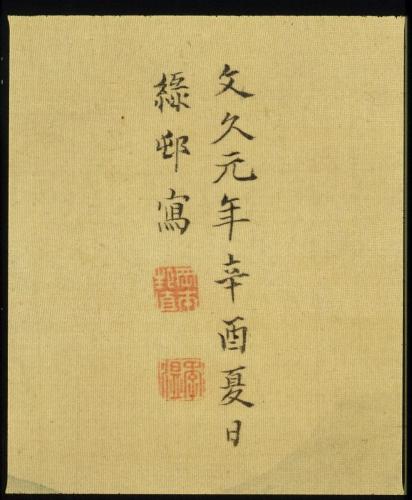 文久元年辛酉夏日
緑邨寫